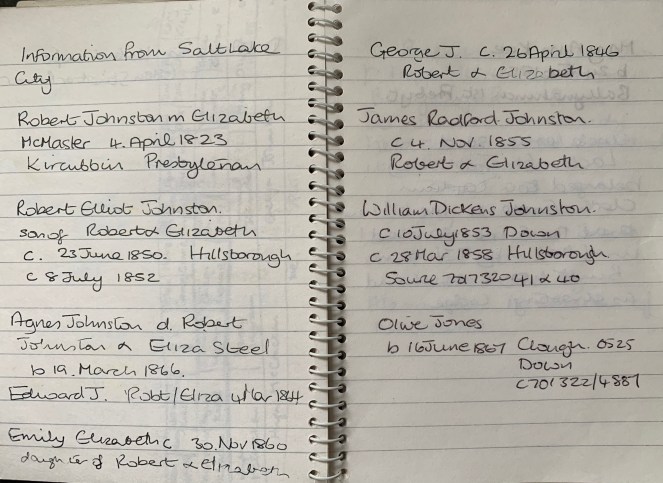 Information from Salt Lake
City
Robert Johnston m Elizabeth
McMaster 4. April 1823
Kircubbin Presbyterian
Robert Elliot Johnston.
son of Robert & Elizabeth
c. 23 June 1850. Hillsborough
c 8 July 1852
Agnes Johnston d. Robert
Johnston & Eliza Steel
b 19. March 1866.
Edward J. Robt/Eliza 4 Mar 1844
Emily Elizabeth c 30. Nov 1860
daughter of Robert & Elizabeth
George J. C. 26 April 1846
Robert & Elizabeth
James Radford Johnston.
C 4. Nov. 1855
Robert & Elizabeth
William Dickens Johnston.
C 10 July 1853 Down
C 28 Mar 1858 Hillsborough.
Source 701732041 & 40
Olive Jones
b 16 June 1867 Clough. 0525
Down
C701322/4887